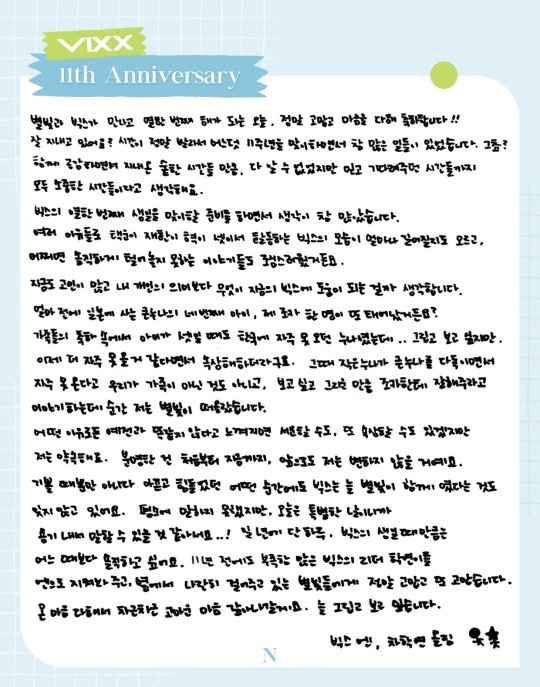 VIXX
11th Anniversary
별빛과 빅스가 만나고 열한 번째 해가 되는 오늘, 정말 고맙고 마음을 다해 축하합니다!!
잘 지내고 있어요? 시간이 정말 빨라서 어느덧 11주년을 맞이하면서 참 많은 일들이 있었습니다. 그쵸?
함께 공감하면서 지내온 숱한 시간들 만큼, 다 알 수 없었지만 믿고 기다려주던 시간들까지
모두 소중한 시간들이라고 생각해요.
빅스의 열한 번째 생일을 맞이할 준비를 하면서 생각이 참 많았습니다.
여러 이유들로 택운이 재환이 혁이 셋이서 활동하는 빅스의 모습이 얼마나 길어질지도 모르고,
어쩌면 솔직하게 털어놓지 못하는 이야기들도 조심스러웠거든요.
지금도 고민이 많고 내 개인의 의미보다 무엇이 지금의 빅스에 도움이 되는 걸까 생각합니다.
얼마 전에 일본에 사는 큰누나의 네 번째 아이, 제 조카가 한 명이 또 태어났거든요?
가족들의 축하 속에서 아이가 셋일 때도 한국에 자주 못 오던 누나였는데.. 그립고 보고 싶지만,
이제 더 자주 못 올 거 같다면서 속상해하더라구요. 그때 작은누나가 큰누나를 다독이면서
자주 못 온다고 우리가 가족이 아닌 것도 아니고, 보고 싶고 그리운 만큼 조카한테 잘해주라고
이야기하는데 순간 저는 별빛이 떠올랐습니다.
어떤 이유로든 예전과 똑같지 않다고 느껴지면 서운할 수도, 또 속상할 수도 있겠지만
저는 약속해요. 분명한 건 처음부터 지금까지, 앞으로도 저는 변하지 않을 거예요.
기쁠 때뿐만 아니라 아프고 힘들었던 어떤 순간에도 빅스는 늘 별빛이 함께 였다는 것도
잊지 않고 있어요. 평소에 말하지 못했지만, 오늘은 특별한 날이니까
용기 내서 말할 수 있을 것 같아서요..! 일 년에 단 하루, 빅스의 생일 때만큼은
어느 때보다 솔직하고 싶어요. 11년 전에도 부족한 많은 빅스의 리더 학연이를
옆으로 지켜봐 주고, 옆에서 나란히 걸어주고 있는 별빛들에게 정말 고맙고 또 고맙습니다.
온 마음 다해서 차근차근 고마운 마음 갚아나갈게요. 늘 그립고 보고 싶습니다.
빅스 엔, 차학연 올림
N